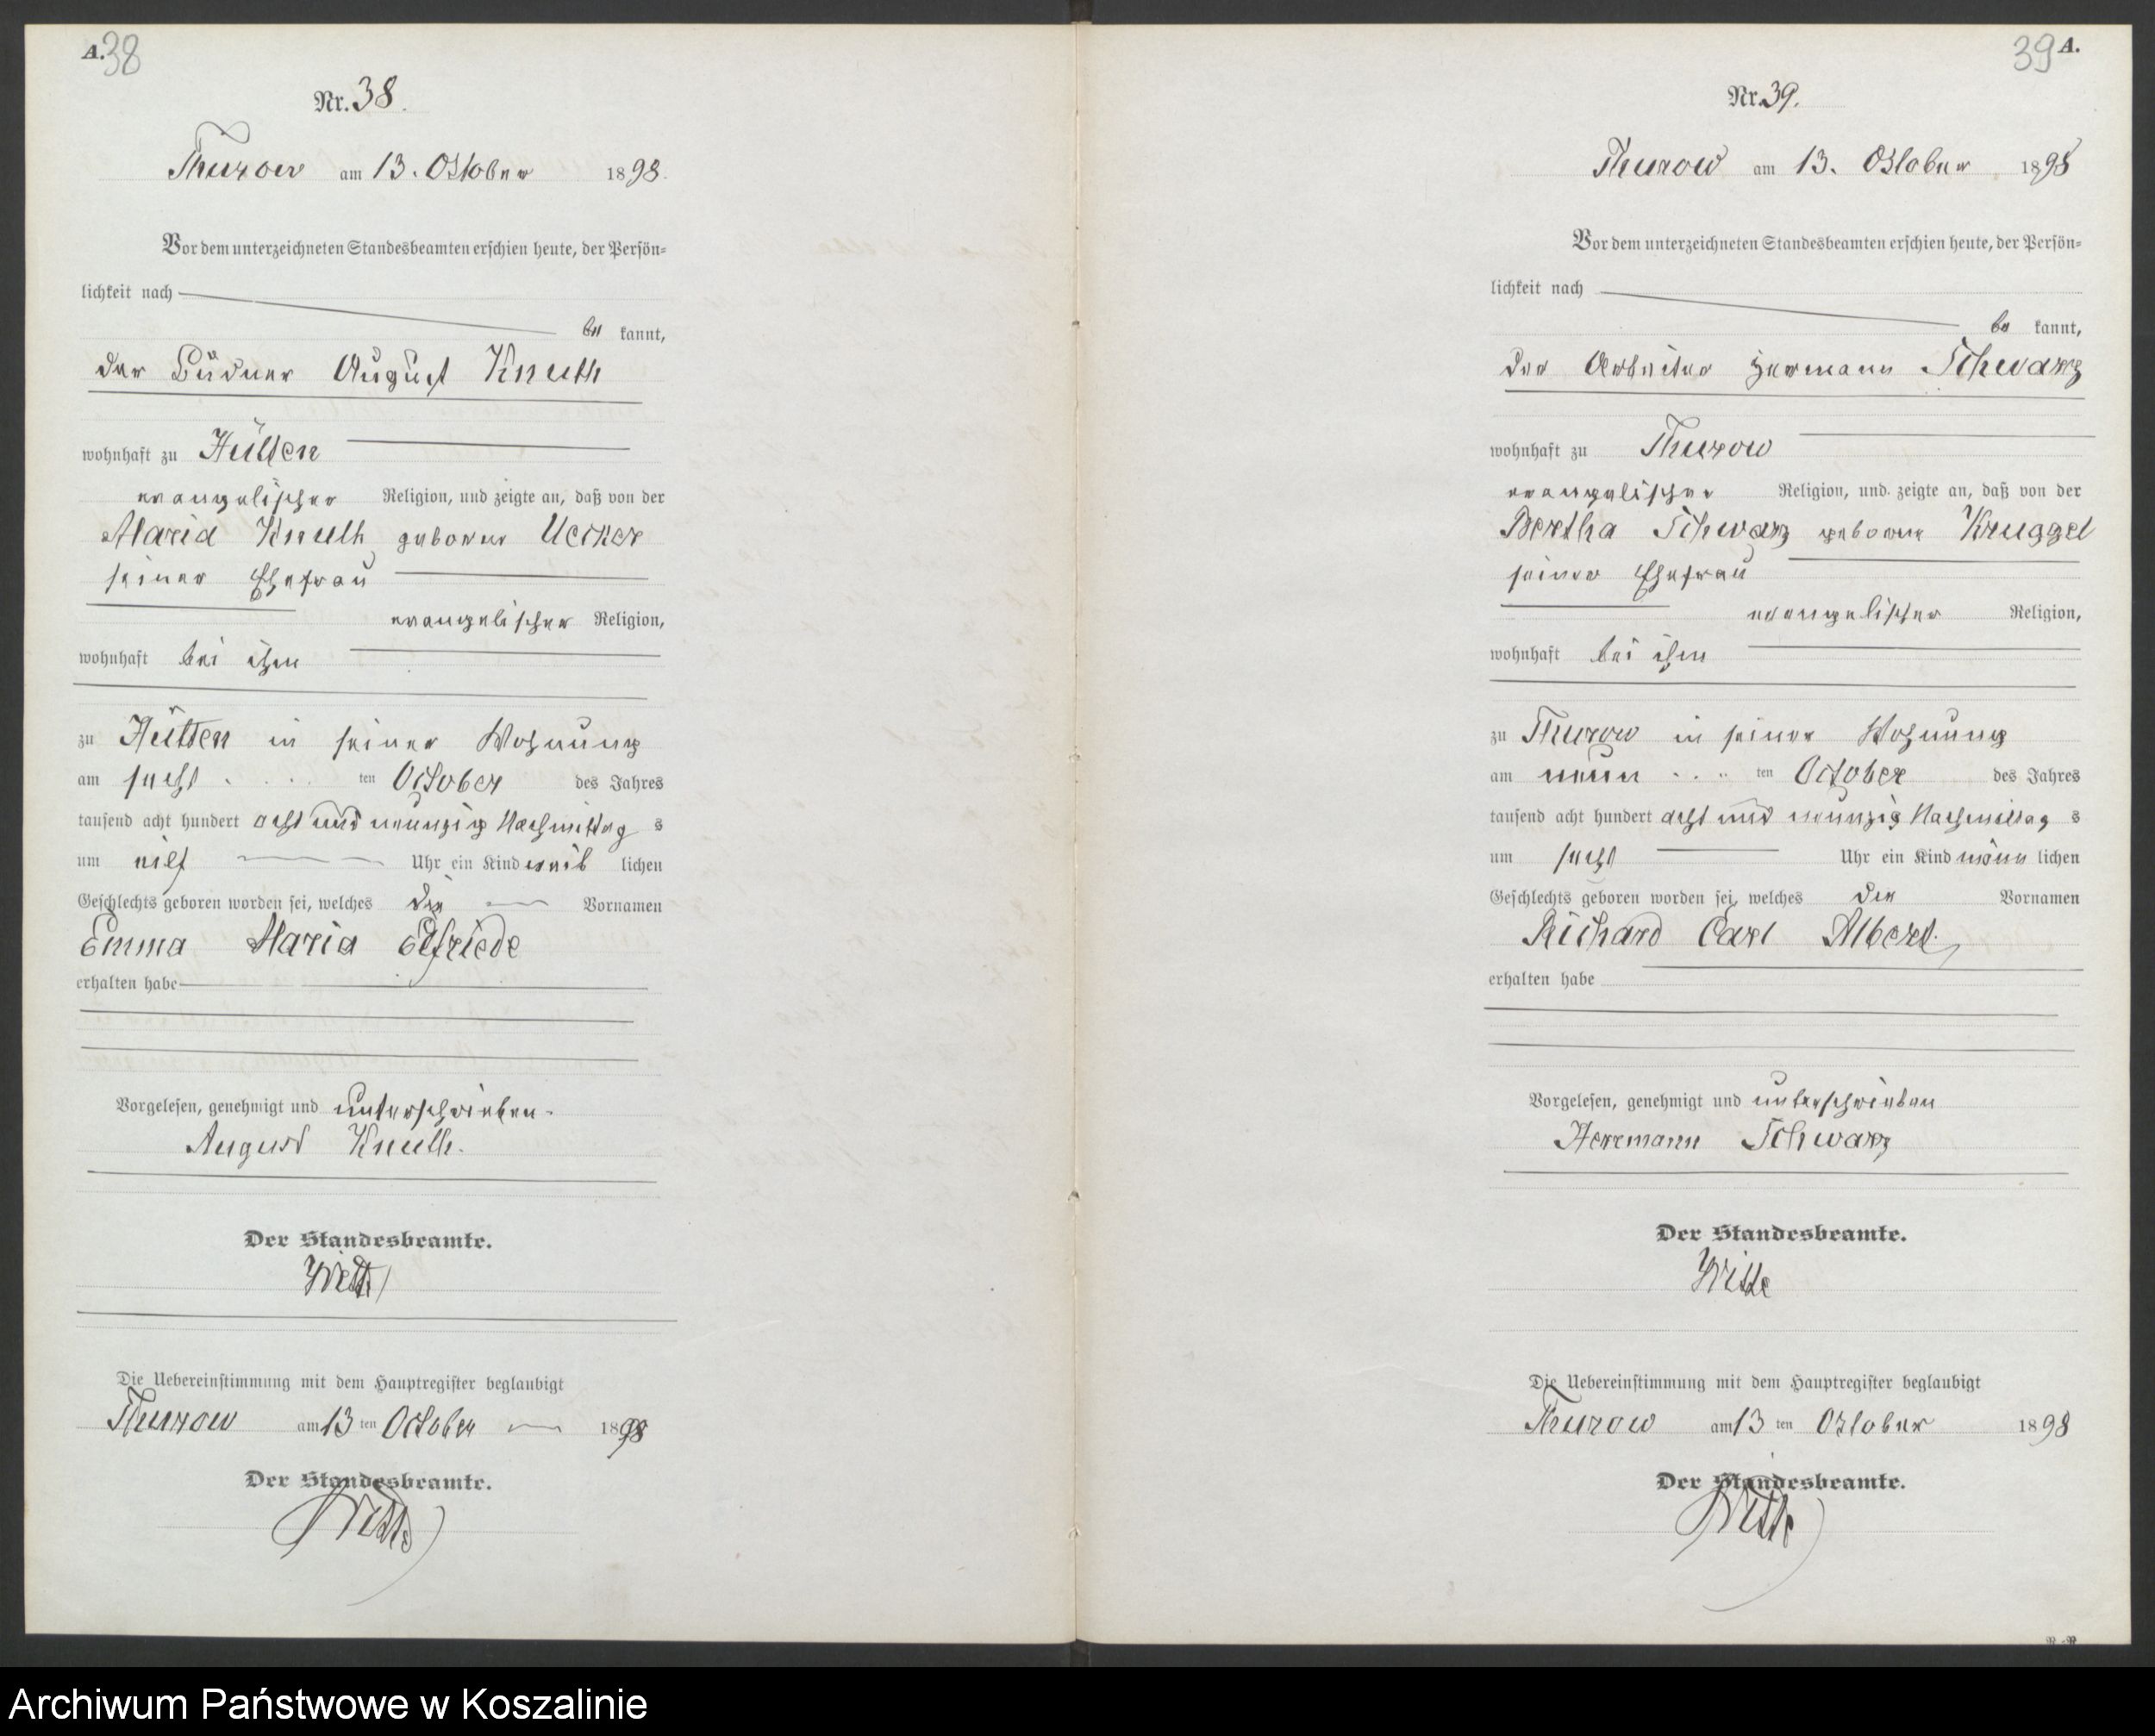 A. 38
Nr. 38.
Thurow am 13. October 1898.
Vor dem unterzeichneten Standesbeamten erschien heute, der Persön-
lichkeit nach
be kannt,
der Büdner August Knuth
wohnhaft zu Hütten
evangelischer Religion, und zeigte an, daß von der
Maria Knuth geborene Uecker
seiner Ehefrau
evangelischer Religion,
wohnhaft bei ihm
zu Hütten in seiner Wohnung
am sechs ten October des Jahres
tausend acht hundert acht und neunzig Nachmittag s
um elf Uhr ein Kind weib lichen
Geschlechts geboren worden sei, welches die Vornamen
Emma Maria Elfriede
erhalten habe
Vorgelesen, genehmigt und unterschrieben.
August Knuth.
Der Standesbeamte.
Witte
Die Uebereinstimmung mit dem Hauptregister beglaubigt
Thurow am 13 ten October 1898
Der Standesbeamte.
Witte
39 A.
Nr. 39.
Thurow am 13. October 1898
Vor dem unterzeichneten Standesbeamten erschien heute, der Persön-
lichkeit nach
be kannt,
der Arbeiter Hermann Schwarz
wohnhaft zu Thurow
evangelischer Religion, und zeigte an, daß von der
Bertha Schwarz geborene Kruggel
seiner Ehefrau
evangelischer Religion,
wohnhaft bei ihm
zu Thurow in seiner Wohnung
am neun ten October des Jahres
tausend acht hundert acht und neunzig Nachmittag s
um sechs Uhr ein Kind männ lichen
Geschlechts geboren worden sei, welches den Vornamen
Richard Carl Albert.
erhalten habe
Vorgelesen, genehmigt und unterschrieben
Herrmann Schwarz
Der Standesbeamte.
Witte
Die Uebereinstimmung mit dem Hauptregister beglaubigt
Thurow am 13 ten October 1898
Der Standesbeamte.
Witte
Archiwum Państwowe w Koszalinie